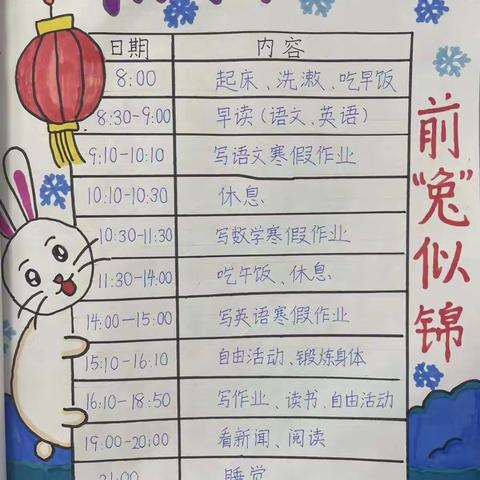 日期 内容
8:00 起床、洗漱、吃早饭
8:30-9:00 早读(语文、英语)
9:10-10:10 写语文寒假作业
10:10-10:30 休息
10:30-11:30 写数学寒假作业
11:30-14:00 吃午饭、休息
14:00-15:00 写英语寒假作业
15:10-16:10 自由活动、锻炼身体
16:10-18:50 写作业、读书、自由活动
19:00-20:00 看新闻、阅读
21:00 睡觉
前"兔"似锦